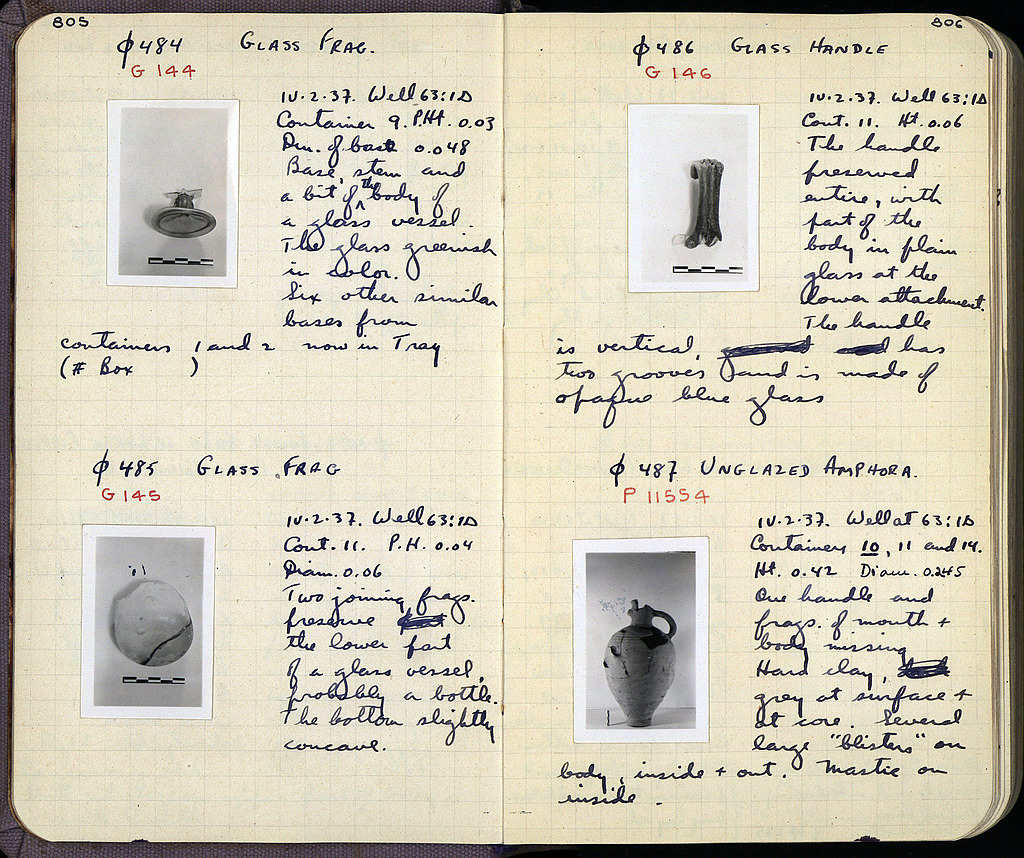 805
φ 484 GLASS FRAG.
G 144
IV.2.37. Well 63:1Δ
Container 9. P.Ht. 0.03
Dm. of base 0.048
Base, stem and
a bit of the body of
a glass vessel.
The glass greenish
in color.
Six other similar
bases from
containers 1 and 2 now in Tray
(# Box )
φ 485 GLASS FRAG
G 145
IV.2.37. Well 63:1Δ
Cont. 11. P.H. 0.04
Diam. 0.06
Two joining frags.
preserve
the lower part
of a glass vessel,
probably a bottle.
The bottom slightly
concave.
806
φ 486 GLASS HANDLE
G 146
IV.2.37. Well 63:1Δ
Cont. 11. Ht. 0.06
The handle
preserved
entire, with
part of the
body in plain
glass at the
lower attachment.
The handle
is vertical, has
two grooves and is made of
opaque blue glass
φ 487 UNGLAZED AMPHORA.
P 11554
IV.2.37. Well at 63:1Δ
Containers 10, 11 and 14.
Ht. 0.42 Diam. 0.245
One handle and
frags. of mouth +
body missing
Hard clay,
grey at surface +
at core. Several
large "blisters" on
body, inside + out. Mastic on
inside.